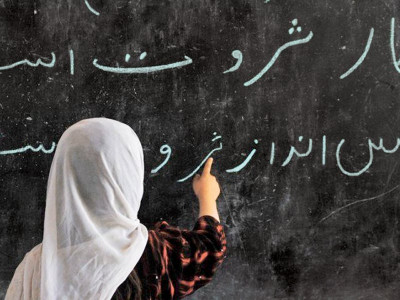 ار ثروت اس
س انداز ثرو